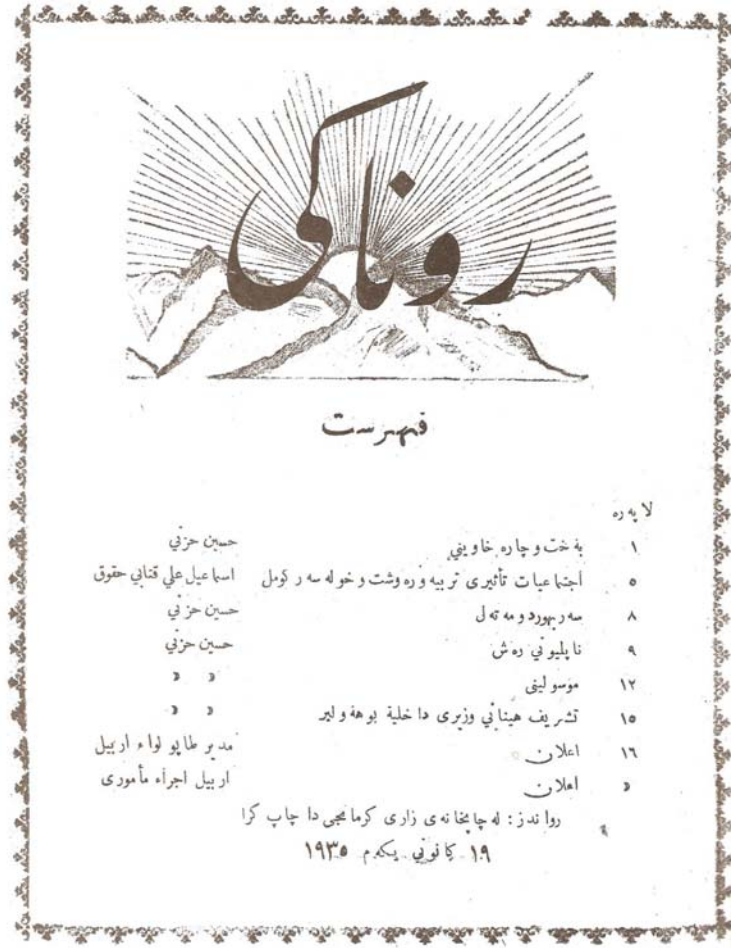 روناکی
فهرست
لا په ره
١ به خت و چاره خاويني حسين حزني
٥ اجتماعيات تأثيرى تربيه وره وشت و خو له سه ر كومل اسماعيل علي قنابي حقوق
٨ سه ربهورد و مه ته ل حسين حزني
٩ ناپليوني ره ش حسين حزني
١٢ موسولينى » »
١٥ تشريف هيناني وزيرى داخلية بو هه ولير » »
١٦ اعلان مدير طاپو لواء اربيل
» اعلان اربيل اجراء مأمورى
رواندز : له چاپخانه ى زارى كرمانجى دا چاپ كرا
١٩ كانوني يكه م ١٩٣٥